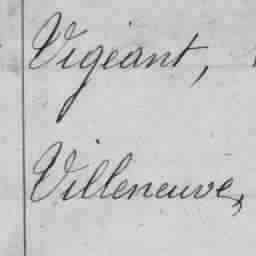 Vigeant,
Villeneuve,